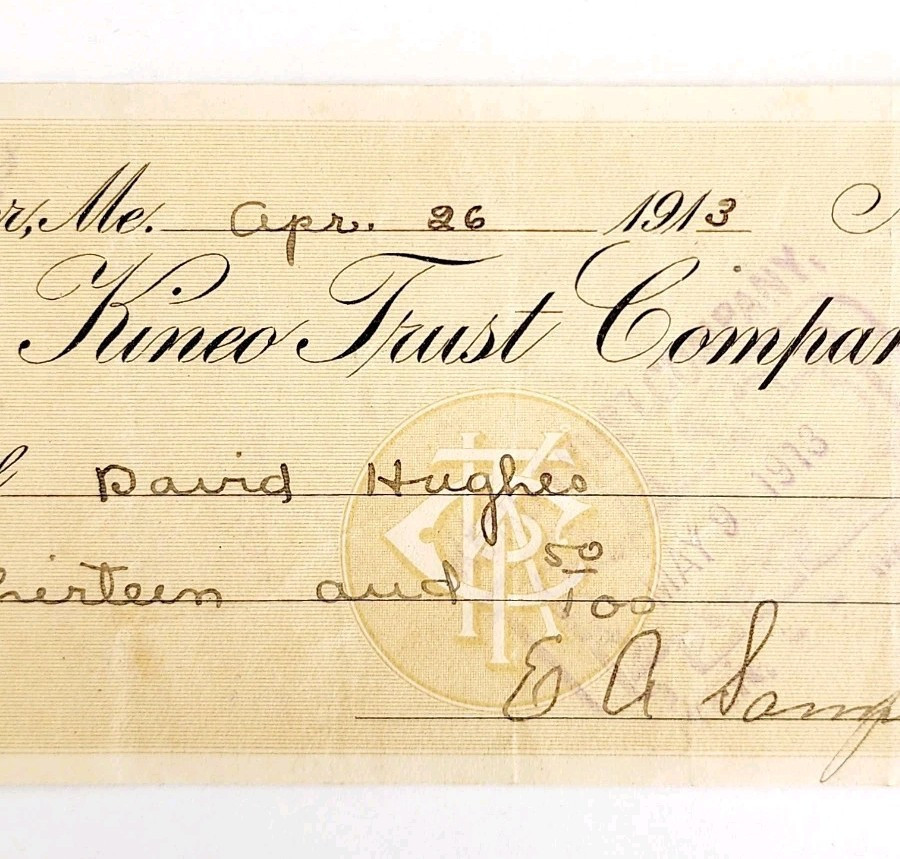 r, Me. Apr. 26 1913
Kineo Trust Compan
David Hughes
hirteen and 50/100
E A Samp
PANY,
MAY 9 1913